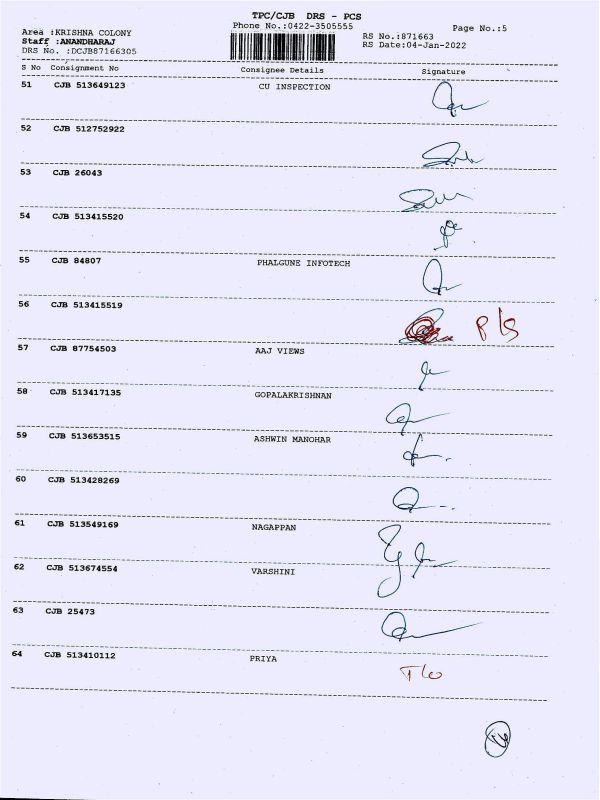 TPC/CJB DRS - PCS
Phone No.:0422-3505555
Page No.:5
Area :KRISHNA COLONY
Staff :ANANDHARAJ
DRS No. :DCJB87166305
RS No.:871663
RS Date:04-Jan-2022
S No Consignment No Consignee Details Signature
51 CJB 513649123 CU INSPECTION
52 CJB 512752922
53 CJB 26043
54 CJB 513415520
55 CJB 84807 PHALGUNE INFOTECH
56 CJB 513415519
57 CJB 87754503 AAJ VIEWS
58 CJB 513417135 GOPALAKRISHNAN
59 CJB 513653515 ASHWIN MANOHAR
60 CJB 513428269
61 CJB 513549169 NAGAPPAN
62 CJB 513674554 VARSHINI
63 CJB 25473
64 CJB 513410112 PRIYA